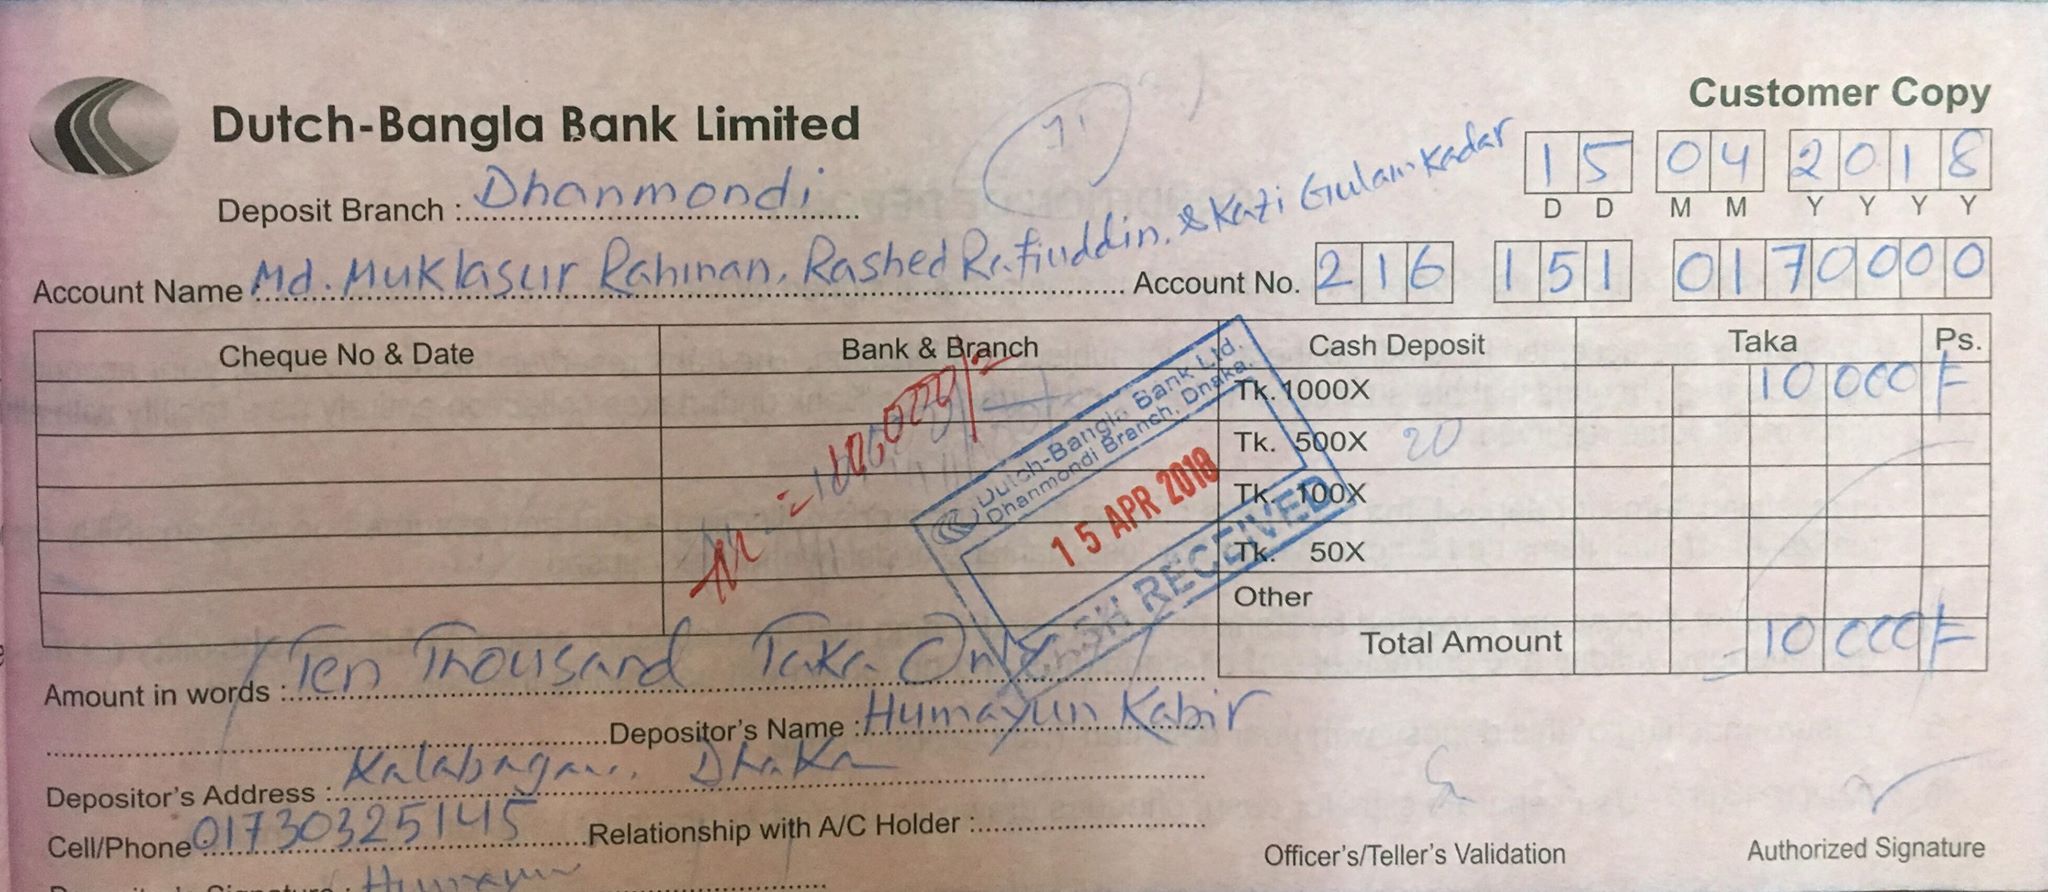 Customer Copy
Dutch-Bangla Bank Limited
15 04 2018
D D M M Y Y Y Y
Deposit Branch : Dhanmondi
Account Name Md. Muklasur Rahman, Rashed Rafiuddin, & Kazi Gulam Kadar Account No. 216 151 0170000
Cheque No & Date Bank & Branch Cash Deposit Taka Ps.
Tk. 1000X 10 000
Tk. 500X 20
Tk. 100X
Tk. 50X
Other
Total Amount 10 000
10,000/=
Dutch-Bangla Bank Ltd.
Dhanmondi Branch, Dhaka.
15 APR 2018
CASH RECEIVED
Amount in words : Ten Thousand Taka Only
Depositor's Name : Humayun Kabir
Depositor's Address : Kalabagan, Dhaka
Cell/Phone 01730325145 Relationship with A/C Holder :
Officer's/Teller's Validation Authorized Signature
Humayun